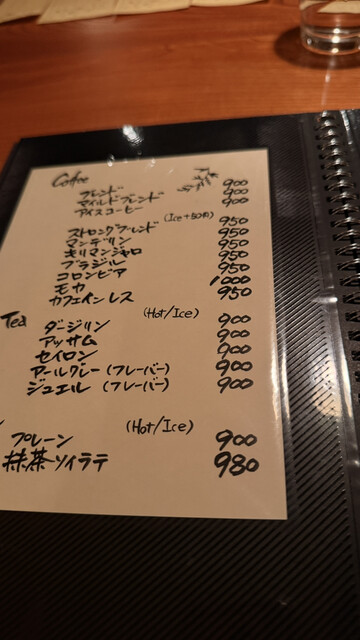 Coffee
ブレンド 900
マイルドブレンド 900
アイスコーヒー 900
(Ice +50円)
ストロングブレンド 950
マンデリン 950
キリマンジャロ 950
ブラジル 950
コロンビア 950
モカ 1000
カフェインレス 950
Tea (Hot/Ice)
ダージリン 900
アッサム 900
セイロン 900
アールグレー (フレーバー) 900
ジュエル (フレーバー) 900
(Hot/Ice)
プレーン 900
抹茶ソイラテ 980